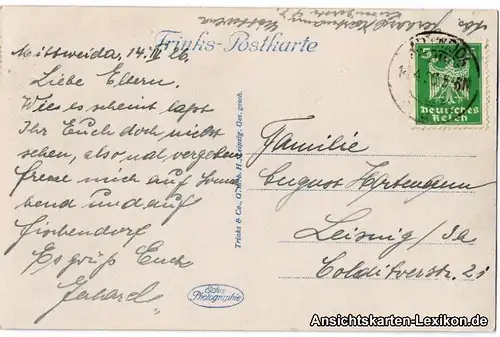 Trinks-Postkarte
Mittweida, 14. IV 26.
Liebe Eltern.
Wies es scheint laßt
Ihr Euch doch nicht
sehen, also
freue mich auf Sonna
bend und auf
Fischendorf
Es grüß Euch
Gerhard
Trinks & Co., G. m. b. H., Leipzig. Ges. gesch.
Echte
Photographie
Deutsches
Reich
Familie
August Hartmann
Leisnig / Sa
Colditzerstr. 21
Ansichtskarten-Lexikon.de